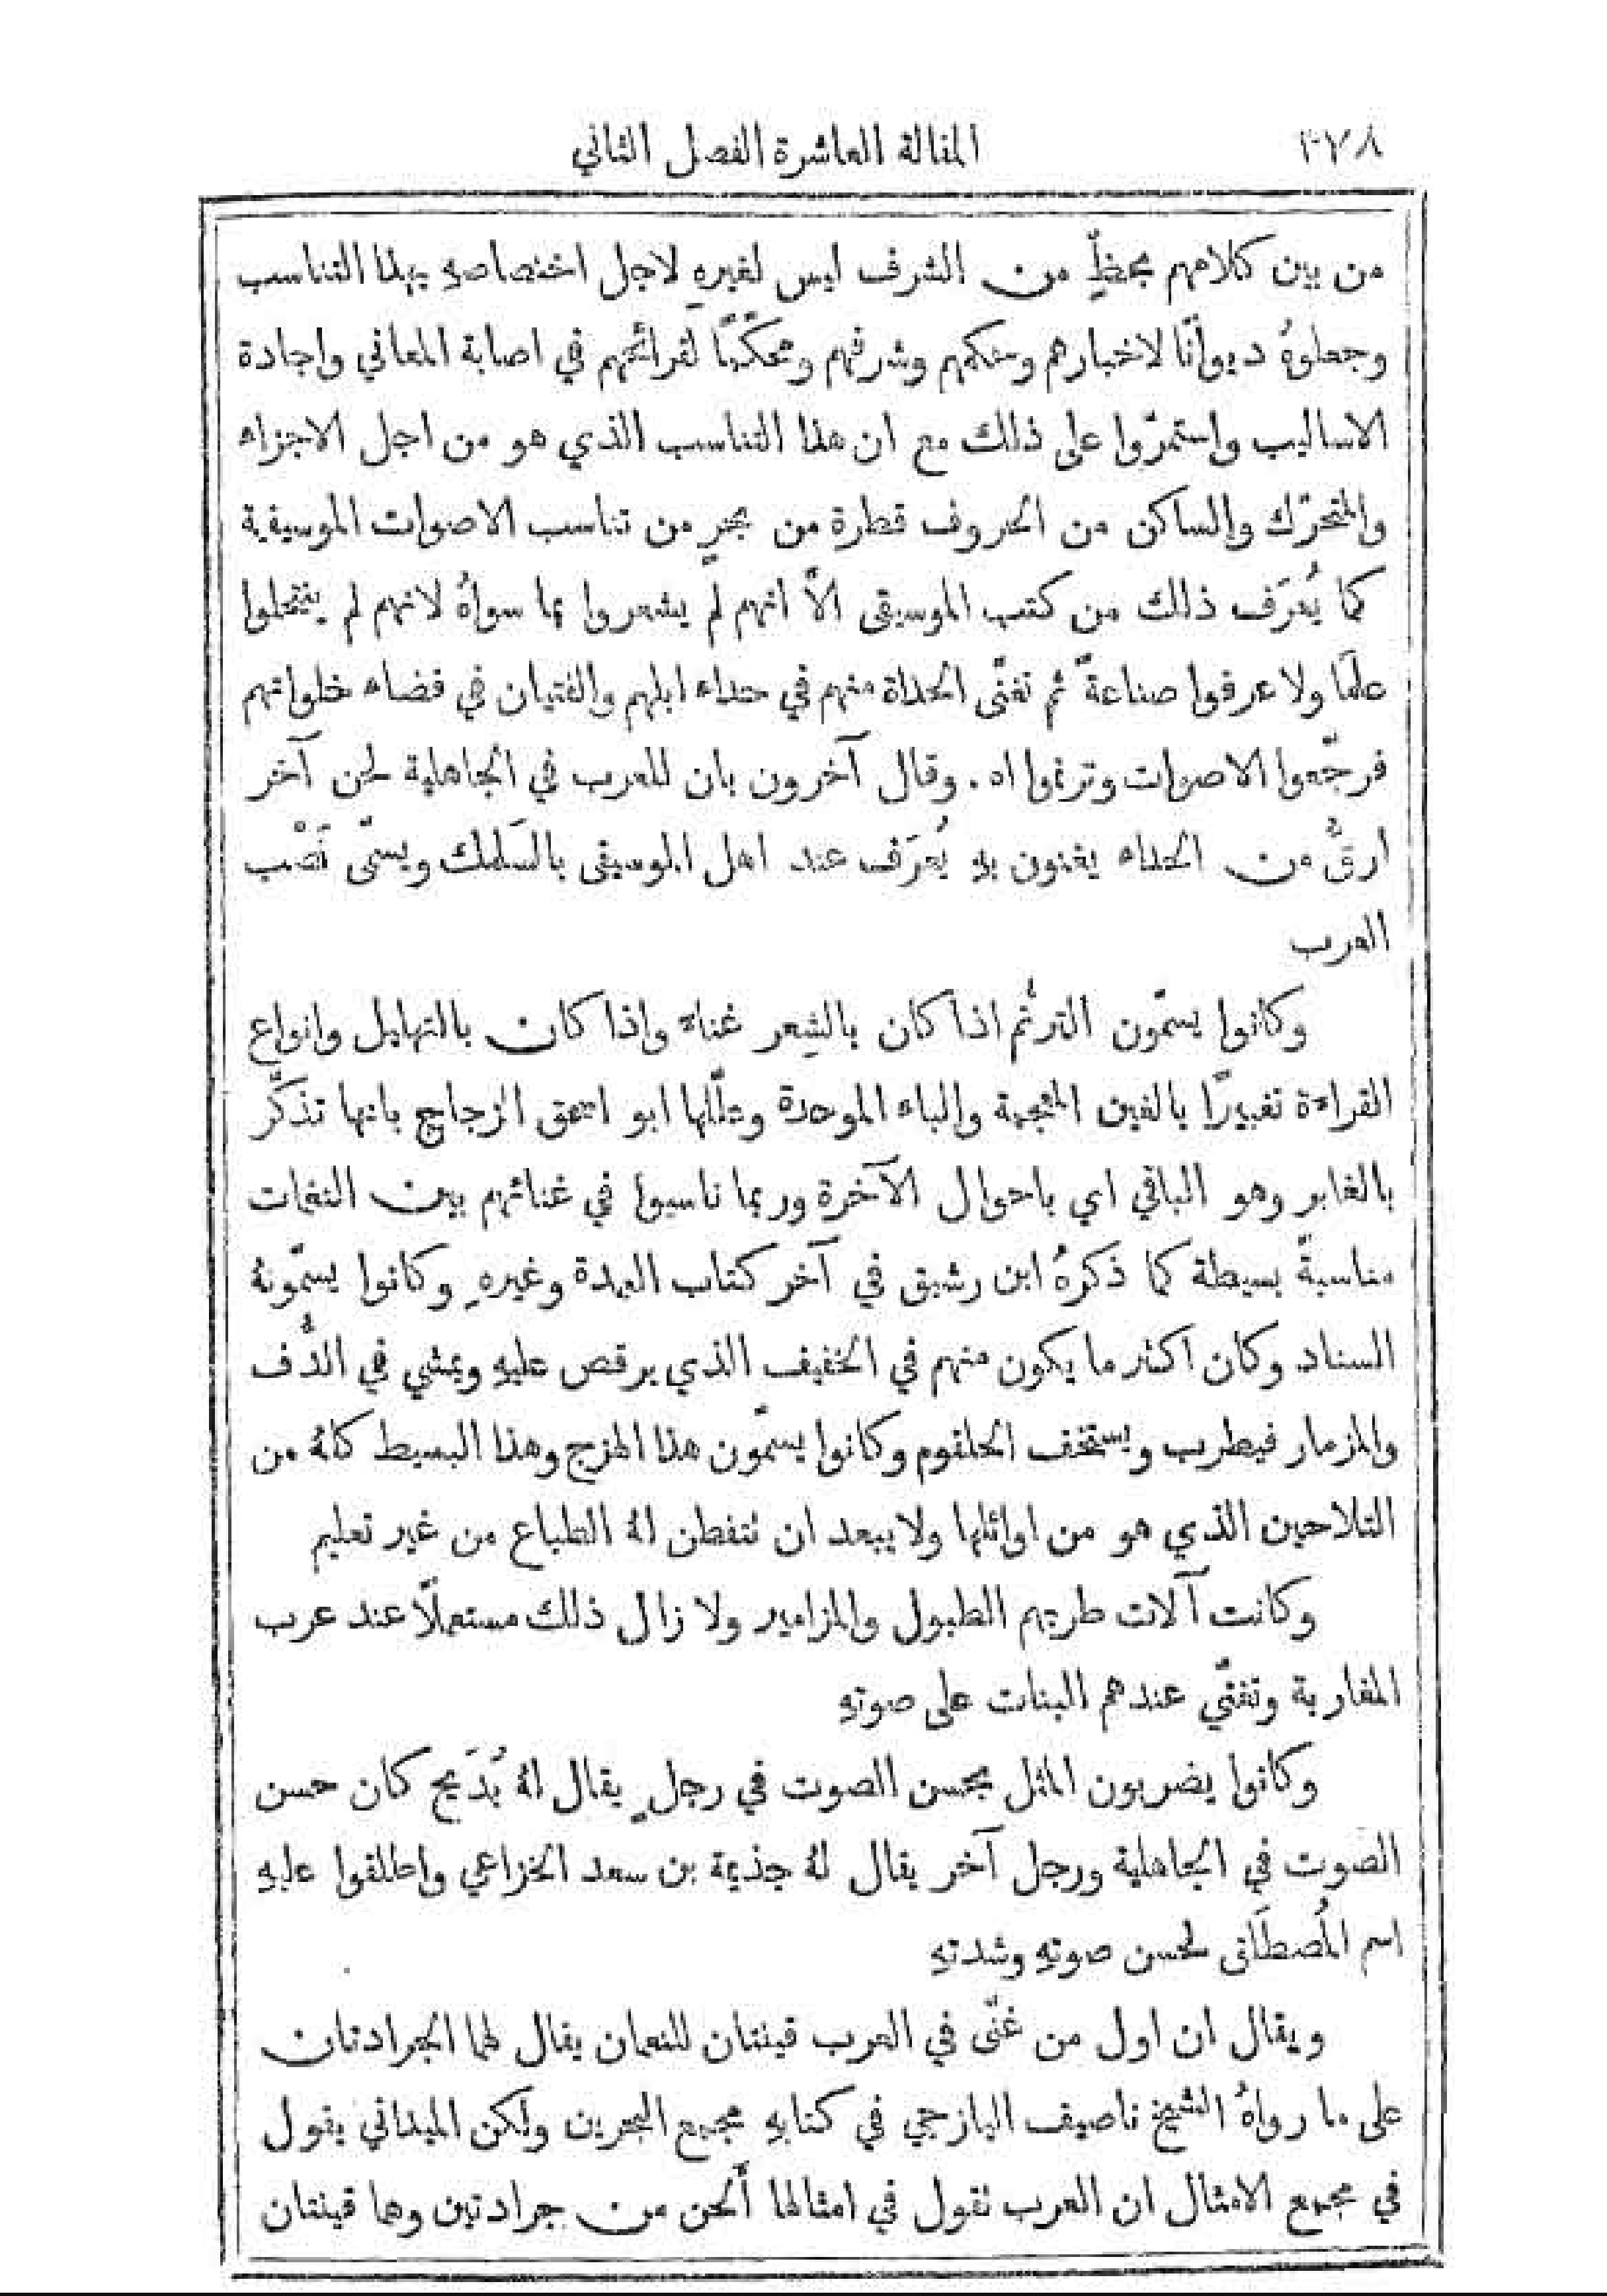 ٢٧٨ المقالة العاشرة الفصل الثاني
من بين كلامهم بحظٍّ من الشرف ليس لغيرهِ لاجل اختصاصهِ بهذا التناسب
وجعلوهُ ديوانًا لاخبارهم وحكمهم وشرفهم ومحكًّا لقرائحهم في اصابة المعاني واجادة
الاساليب واستمرّوا على ذلك مع ان هذا التناسب الذي هو من اجل الاجزاء
والمتحرّك والساكن من الحروف قطرة من بحرٍ من تناسب الاصوات الموسيقية
كما يُعرَف ذلك من كتب الموسيقى الاَّ انهم لم يشعروا بما سواهُ لانهم لم ينتحلوا
علمًا ولا عرفوا صناعةً ثم تغنّى الحداة منهم في حداء ابلهم والفتيان في فضاء خلواتهم
فرجّعوا الاصوات وترنموا اه . وقال آخرون بان للعرب في الجاهلية لحن آخر
ارقُّ من الحداء يغنون بهِ يُعرَف عند اهل الموسيقى بالسَلمك ويسمّى نَصْب
العرب
وكانوا يسمّون الترنُّم اذا كان بالشِعر غناء واذا كان بالتهليل وانواع
القراءة تغبيرًا بالغين المعجمة والباء الموحدة وعلّلها ابو اسحق الزجاج بانها تذكّر
بالغابر وهو الباقي اي باحوال الآخرة وربما ناسبوا في غنائهم بين النغمات
مناسبةً بسيطة كما ذكرهُ ابن رشيق في آخر كتاب العمدة وغيرهِ وكانوا يسمّونهُ
السناد وكان اكثر ما يكون منهم في الخفيف الذي يرقص عليهِ ويمشي في الدُّف
والمزمار فيطرب ويستخف الحلقوم وكانوا يسمّون هذا الهزج وهذا البسيط كلهُ من
التلاحين الذي هو من اوائلها ولا يبعد ان تتفطن لهُ الطباع من غير تعليم
وكانت آلات طربهم الطبول والمزامير ولا زال ذلك مستعملًا عند عرب
المغاربة وتغنّي عندهم البنات على صوتهِ
وكانوا يضربون المثل بحسن الصوت في رجلٍ يقال لهُ بُدَيح كان حسن
الصوت في الجاهلية ورجل آخر يقال لهُ جذيمة بن سعد الخزاعي واطلقوا عليهِ
اسم المُصطَلَق لحسن صوتهِ وشدتهِ
ويقال ان اول من غنّى في العرب قينتان للنعمان يقال لهما الجرادتان
على ما رواهُ الشيخ ناصيف اليازجي في كتابهِ مجمع البحرين ولكن الميداني يقول
في مجمع الامثال ان العرب تقول في امثالها أَلحن من جرادتين وهما قينتان